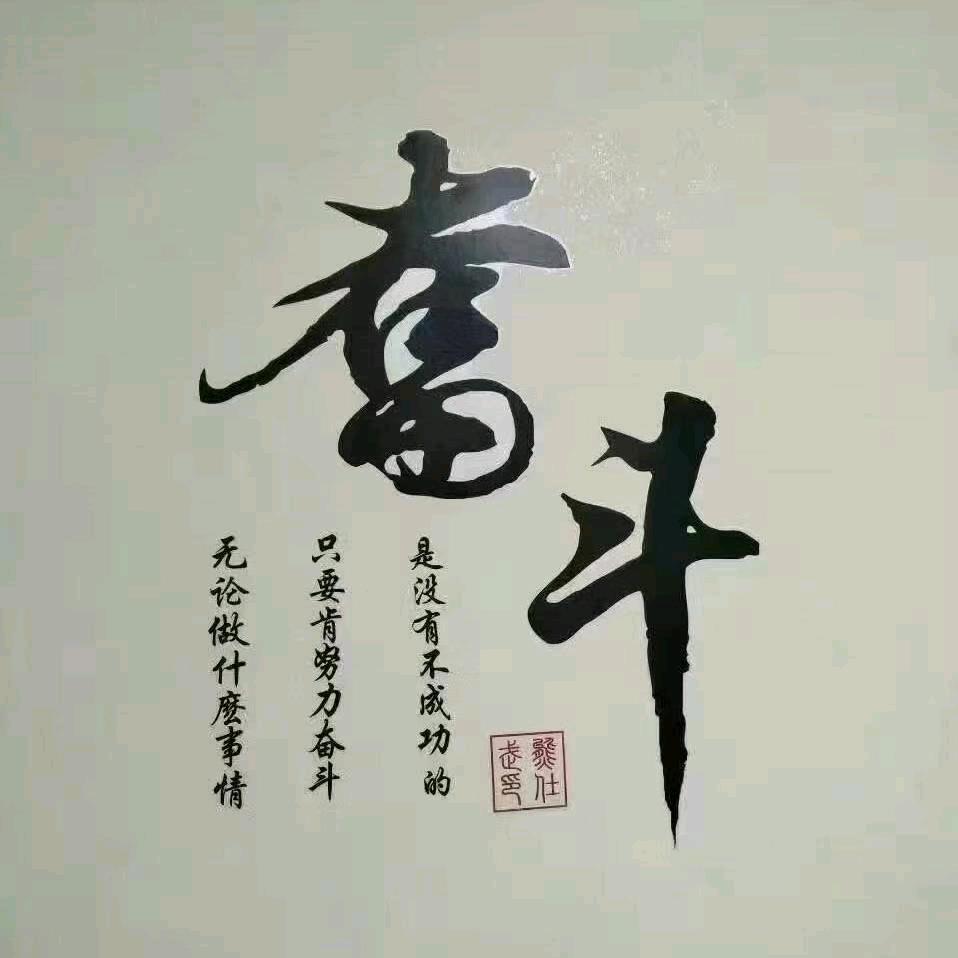 奋斗
无论做什麽事情
只要肯努力奋斗
是没有不成功的